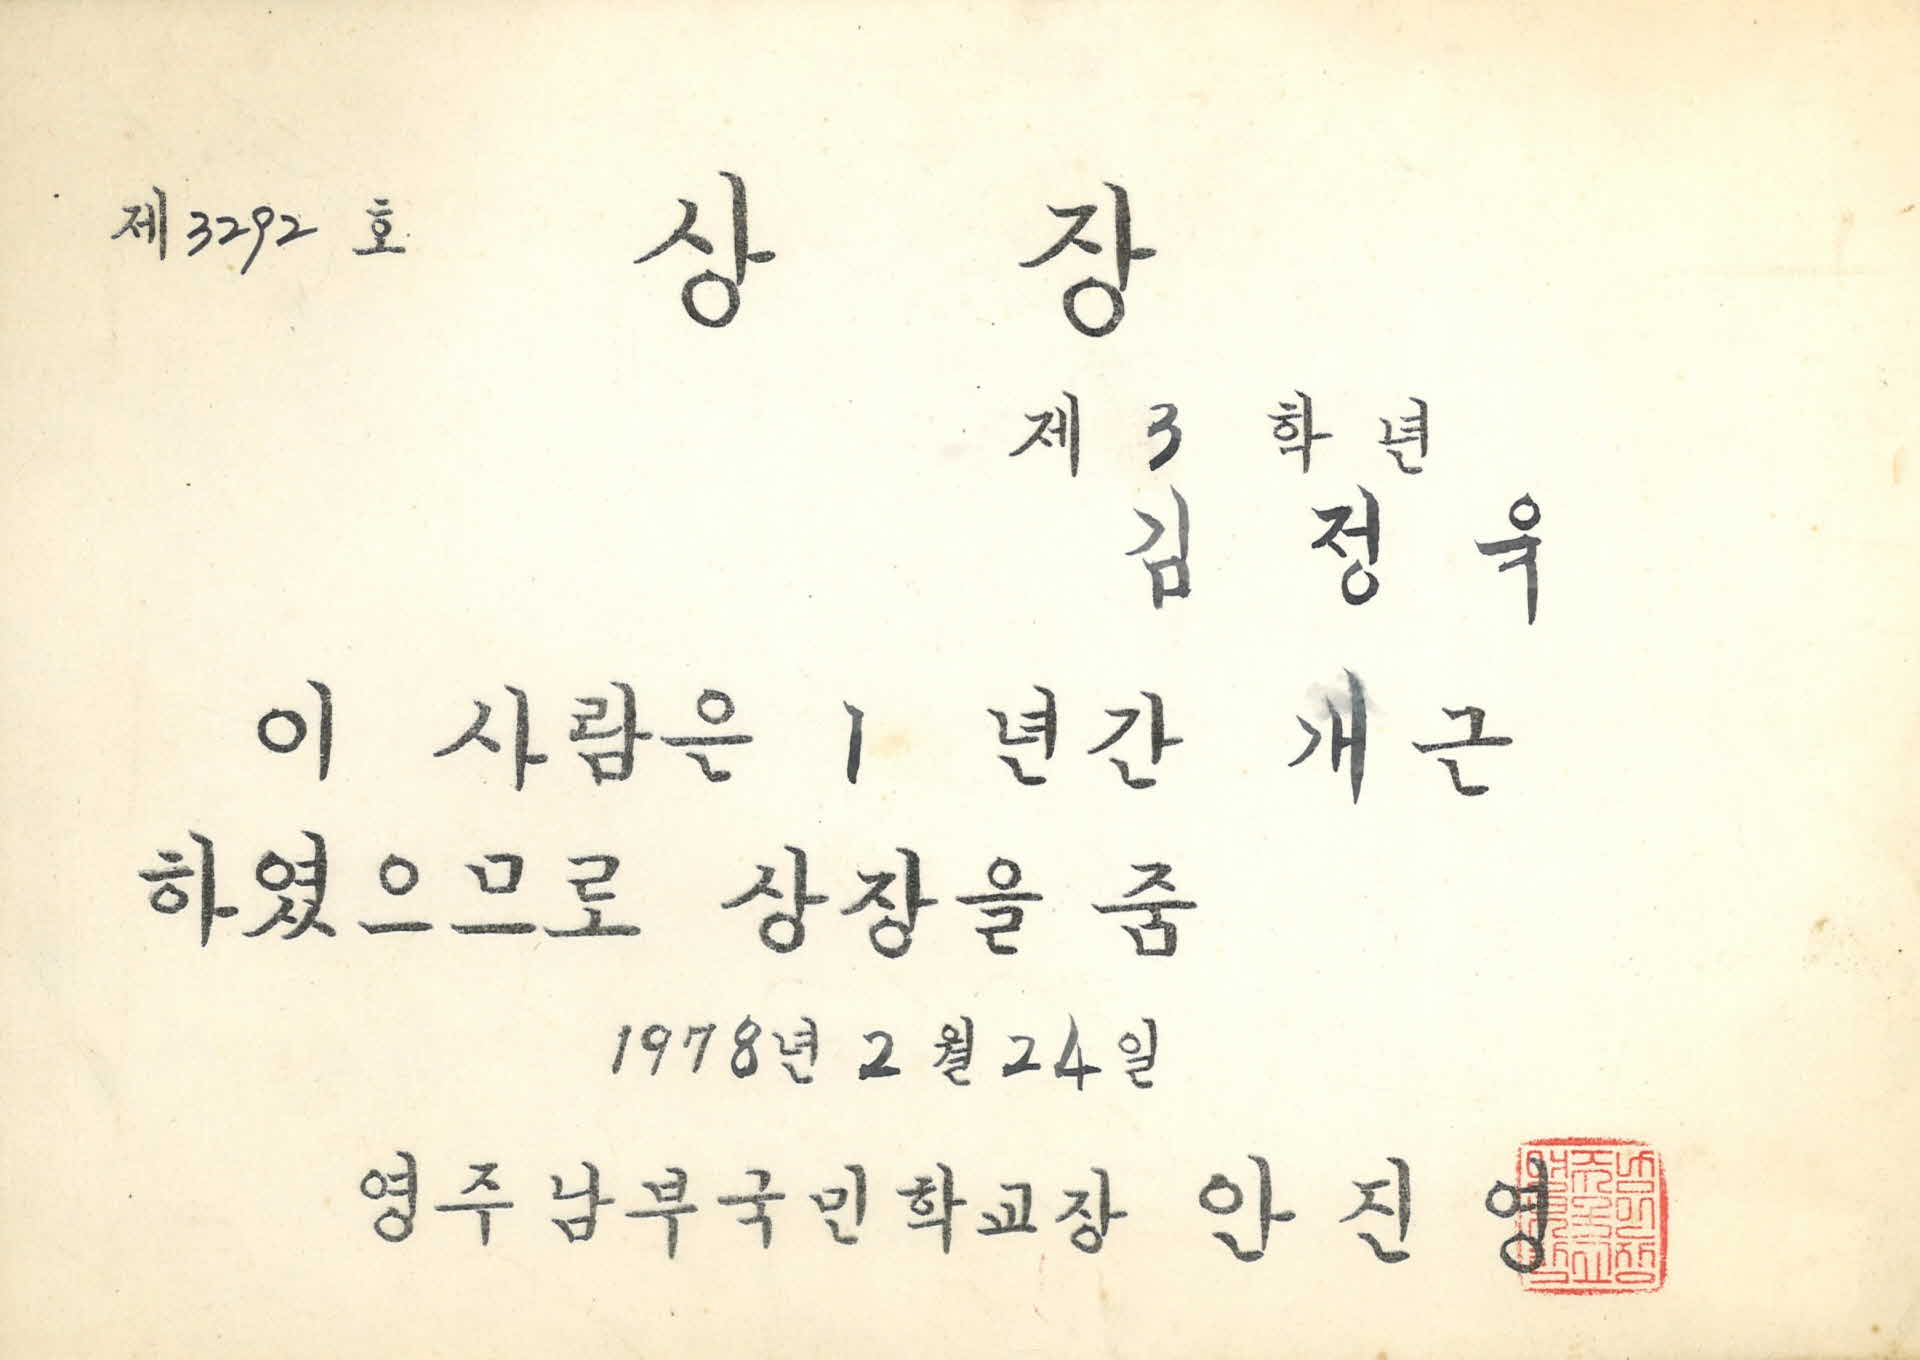 제 3292 호
상 장
제 3 학 년
김 정 욱
이 사람은 1 년간 개근
하였으므로 상장을 줌
1978년 2 월 24 일
영주남부국민학교장 안 진 영